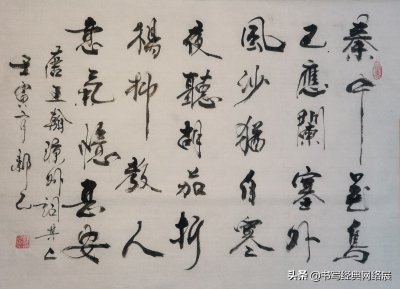 秦中花鳥
已應闌塞外
風沙猶自寒
夜聽胡笳折
楊柳教人
意氣憶長安
唐王翰涼州詞其二
壬寅
头条 @书写经典网络展